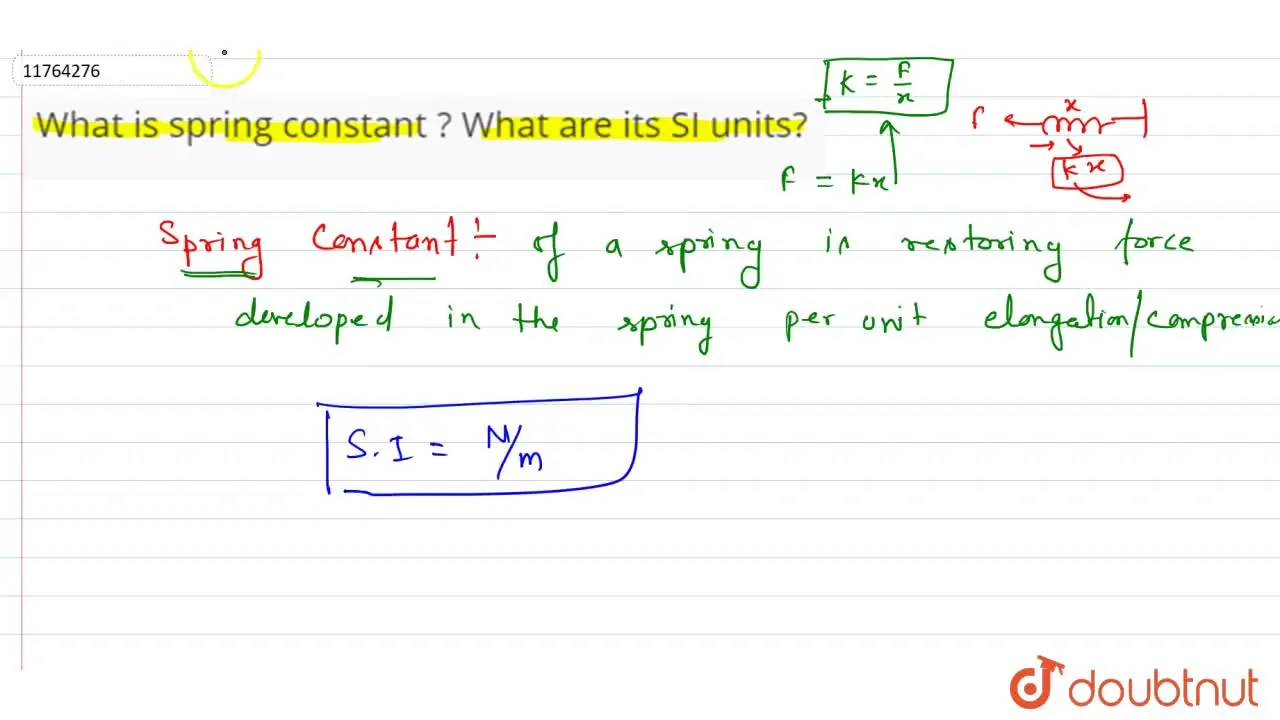 11764276
What is spring constant ? What are its SI units?
K = F/x
F = Kx
F x
K x
Spring Constant :- of a spring is restoring force
developed in the spring per unit elongation/compression
S.I = N/m
doubtnut